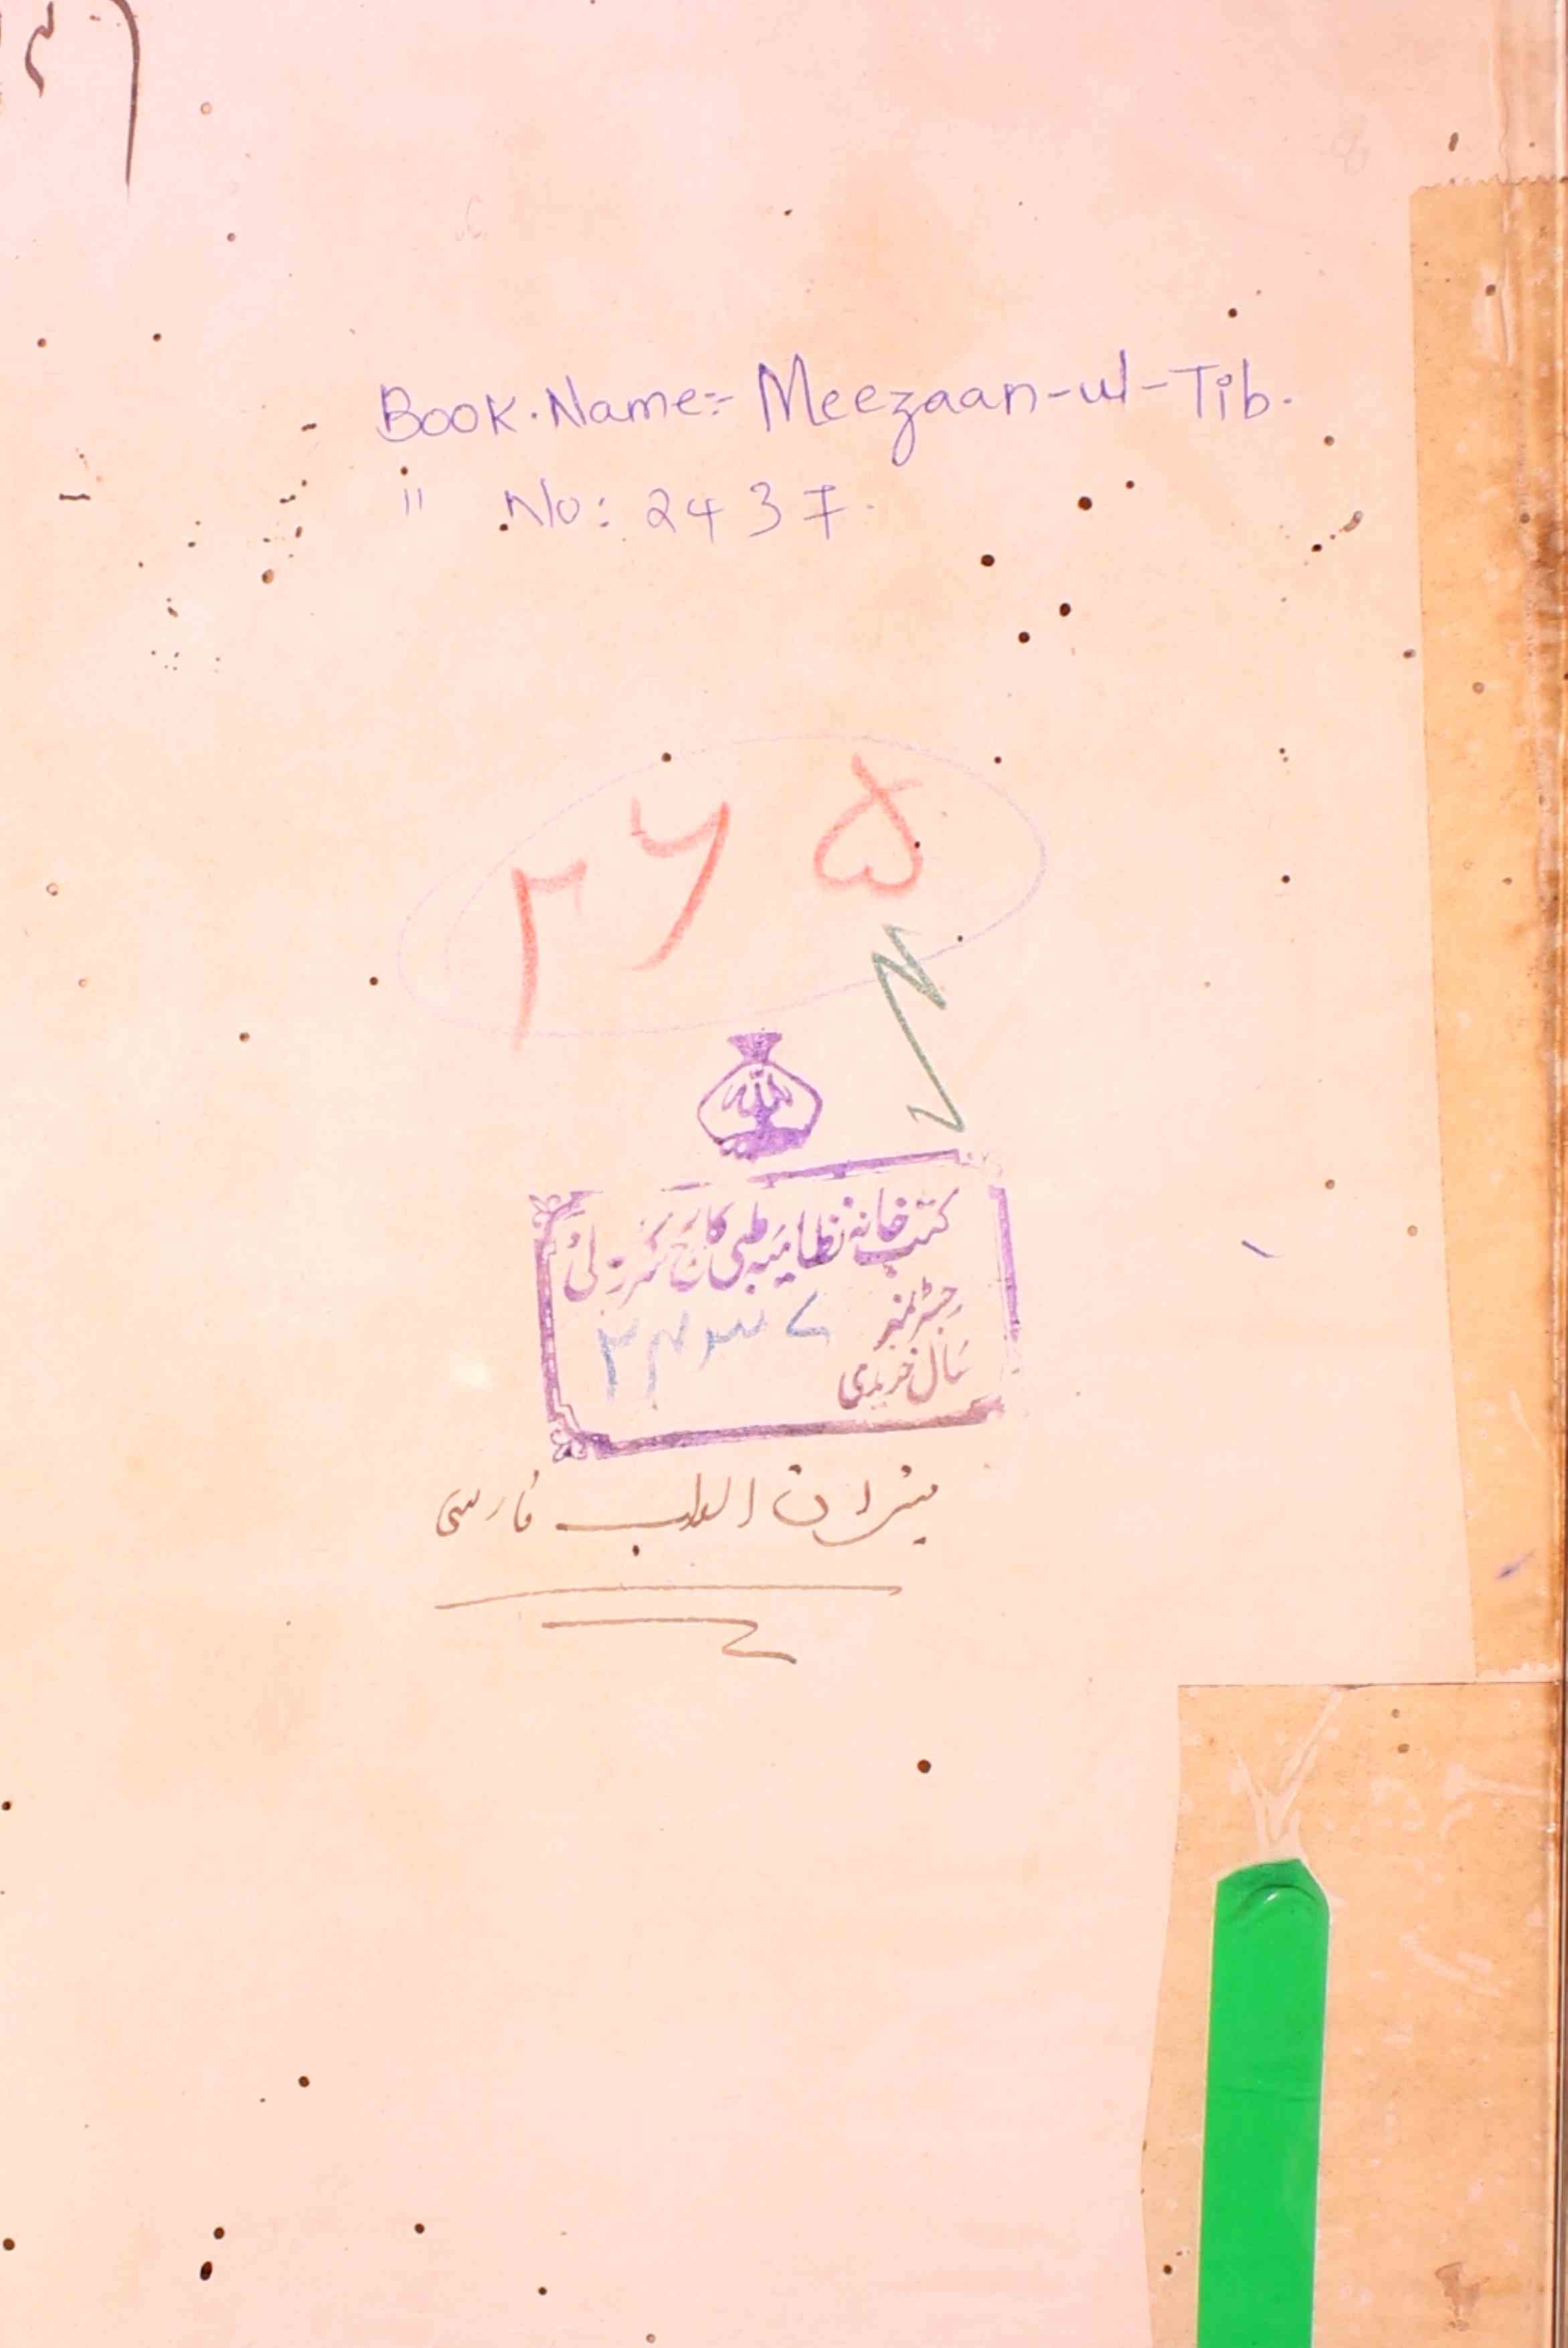 Book.Name:- Meezaan-ul-Tib.
" No: 2437.
۲۶۵
اللہ
کتب خانہ نظامیہ طبی کالج
رجسٹر نمبر ۲۴۳۷
سال خریدی
میزان الطب فارسی